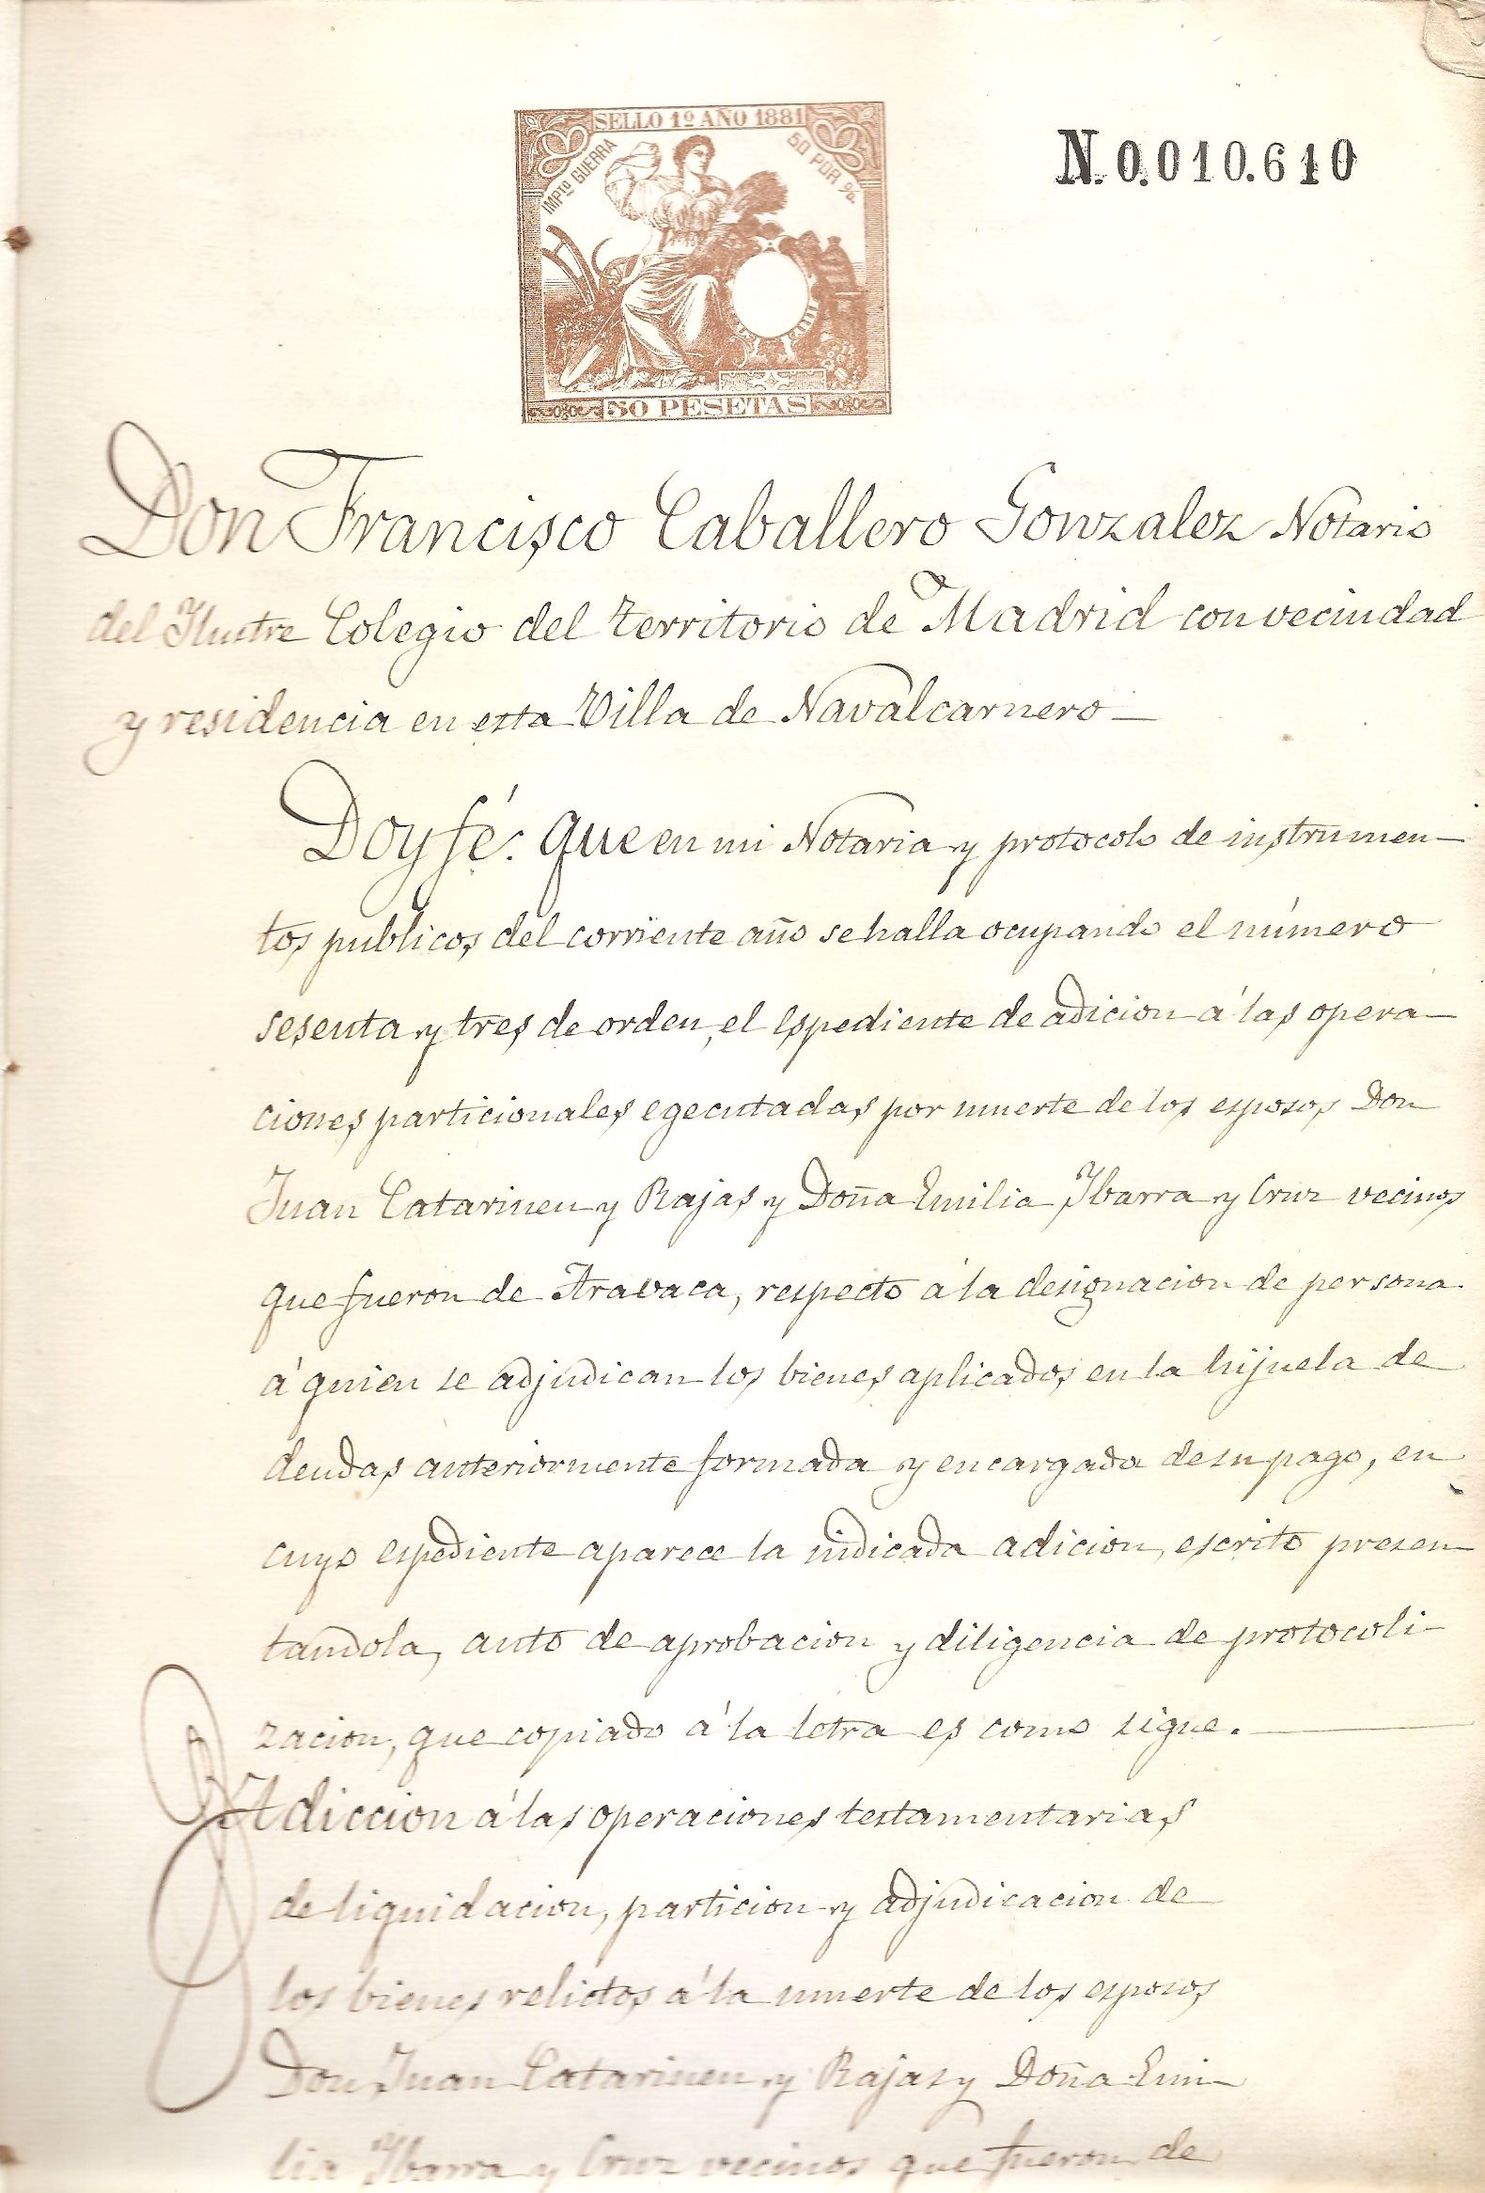 SELLO 1º AÑO 1881
IMPTO GUERRA
50 POR %
50 PESETAS
N.0.010.610
Don Francisco Caballero Gonzalez Notario
del Ilustre Colegio del territorio de Madrid con vecindad
y residencia en esta Villa de Navalcarnero—
Doy fé: Que en mi Notaria y protocolo de instrumen—
tos publicos del corriente año se halla ocupando el número
sesenta y tres de orden, el espediente de adicion á las opera—
ciones particionales egecutadas por muerte de los esposos Don
Juan Catarineu y Rajas y Doña Emilia Ybarra y Cruz vecinos
que fueron de Aravaca, respecto á la designacion de persona
á quien se adjudican los bienes aplicados en la hijuela de
deudas anteriormente formada y encargada de su pago, en
cuyo espediente aparece la indicada adicion, escrito presen—
tandola, auto de aprobacion y diligencia de protocoli—
zacion, que copiado á la letra es como sigue.—
Adiccion á las operaciones testamentarias
de liquidacion, particion y adjudicacion de
los bienes relictos á la muerte de los esposos
Don Juan Catarineu y Rajas y Doña Emi—
lia Ybarra y Cruz vecinos que fueron de